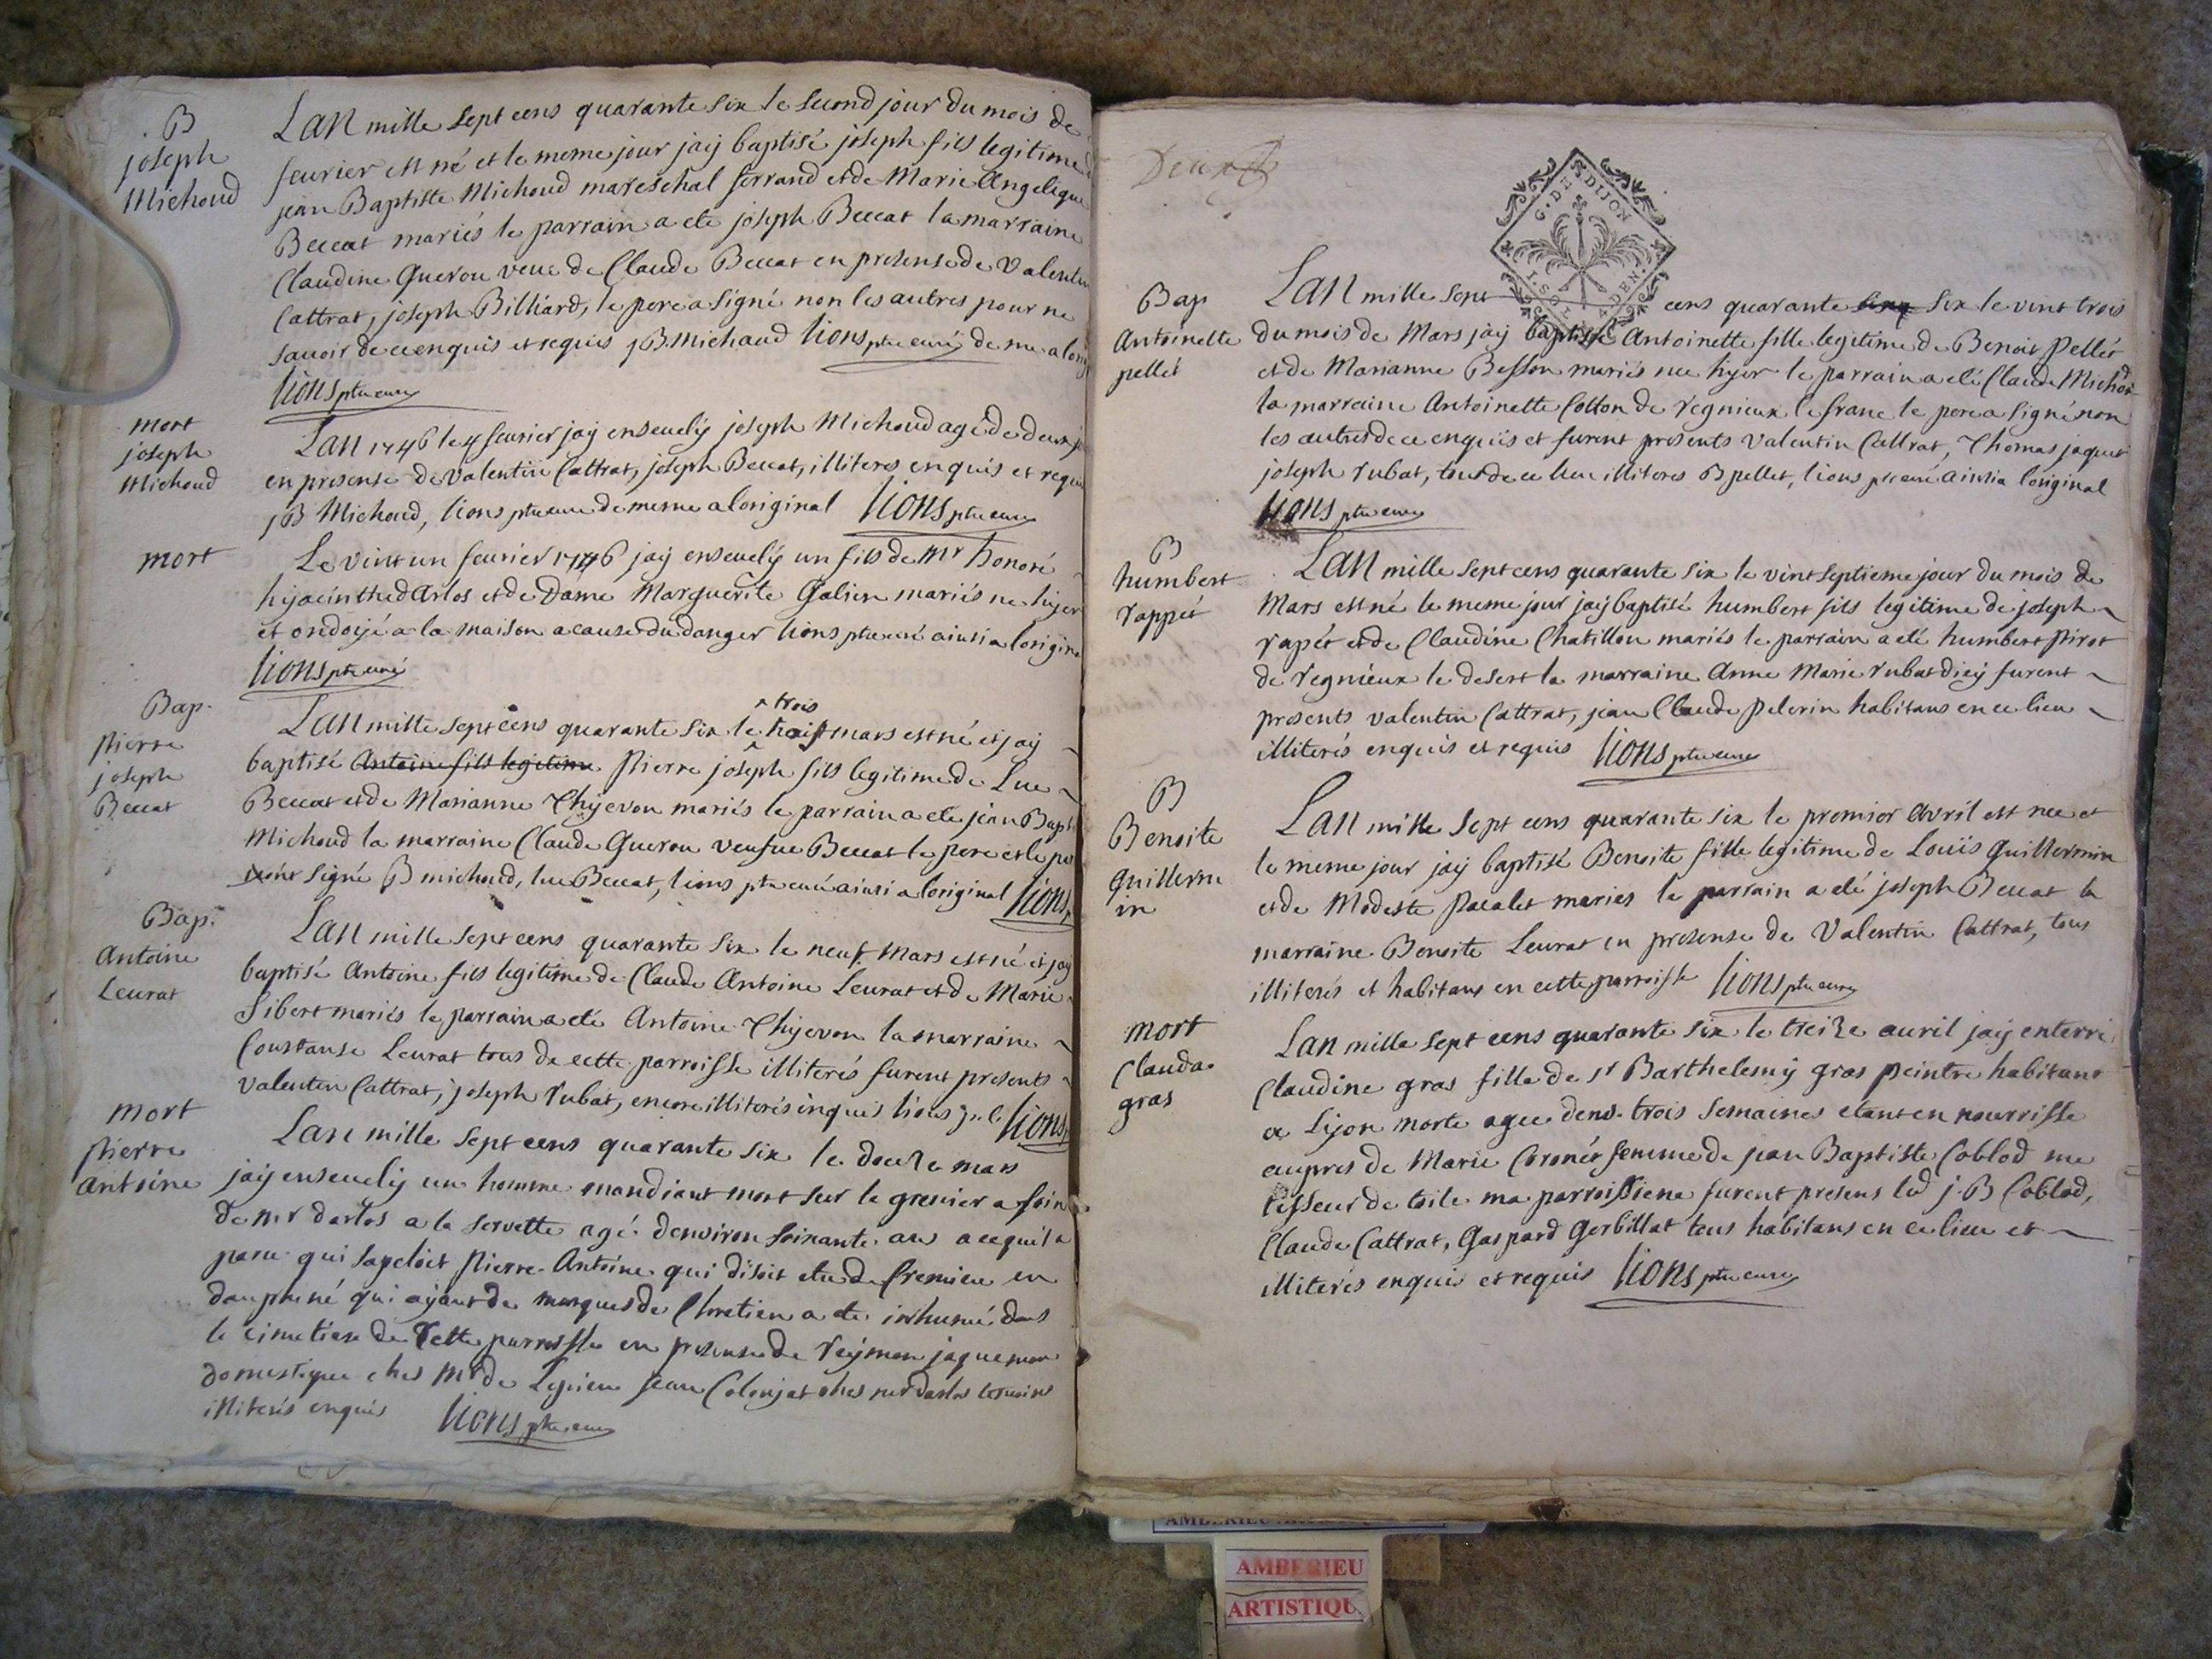 B
joseph
Michoud
Lan mille sept cens quarante six le second jour du mois de
feurier est né et le meme jour jaÿ baptisé joseph fils legitime
jean Baptiste Michoud mareschal ferrand et de Marie Angelique
Beccat mariés le parrain a eté joseph Beccat la marraine
Claudine Querou veue de Claude Beccat en presense de Valentin
Cattrat, joseph Billiard, le pere a signé non les autres pour ne
sauoir de ce enquis et requis jB. Michaud Lions ptre curé de me a lorig
Lions ptre curé
mort
joseph
Michoud
Lan 1746 le 4 feurier jaÿ enseuelÿ joseph Michoud agé de deux j
en presense de Valentin Cattrat, joseph Beccat, illiteres enquis et requis
jB Michoud, Lions ptre curé de meme a loriginal Lions ptre curé
mort
Le vint un feurier 1746 jaÿ enseuelÿ un fils de Mr honoré
hÿacinthe darlos et de Dame Marguerite Galien mariés né hÿer
et ondoÿé a la maison a cause du danger Lions ptre curé ainsi a lorigina
Lions ptre curé
Bap.
pierre
joseph
Beccat
Lan mille sept cens quarante six le trois mars est né et jaÿ
baptisé Antoine fils legitime pierre joseph fils legitime de Luc
Beccat et de Marianne Thÿevon mariés le parrain a eté jean Bapt
Michoud la marraine Claude Querou veufue Beccat le pere et le pa
ont signé B michoud, luc Beccat, Lions ptre curé ainsi a loriginal Lions
Bap.
Antoine
Leurat
Lan mille sept cens quarante six le neuf Mars est né et jaÿ
baptisé Antoine fils legitime de Claude Antoine Leurat et de Marie
Sibert mariés le parrain a eté Antoine Thÿevon la marraine
Constanse Leurat tous de cette parroisse illiterés furent presents
Valentin Cattrat, joseph Rubat, encore illiterés enquis Lions Lions
mort
pierre
Antoine
Lan mille sept cens quarante six le douze mars
jaÿ enseuelÿ un homme mandiant mort sur le grenier a foin
de Mr darlos a la seruette agé denviron soixante ans a cequil a
paru qui sapeloit pierre Antoine qui disoit etre de Cremieu en
dauphiné qui aÿant de marques de Chretien a eté inhumé dans
le cimetiere de cette parroisse en presense de Reÿmon jaquemon
domestique ches Mr de Leÿrieu jean Colonjat ches mr darlos temoins
illiterés enquis Lions ptre curé
G. DE DIJON
Bap
Antoinette
pellét
Lan mille sept cens quarante cinq six le vint trois
du mois de Mars jaÿ baptisé Antoinette fille legitime de Benoit pellét
et de Marianne Besson mariés nee hÿer le parrain a eté Claude Michoud
la marraine Antoinette Cotton de regnieux le franc le pere a signé non
les autres de ce enquis et furent presents Valentin Cattrat, Thomas jaquet
joseph Rubat, tous de ce lieu illiteres B pellet, Lions ptre curé ainsi a loriginal
Lions ptre curé
B
humbert
rappét
Lan mille sept cens quarante six le vint septieme jour du mois de
Mars est né le meme jour jaÿ baptisé humbert fils legitime de joseph
rapét et de Claudine Chatillon mariés le parrain a eté humbert pirot
de regnieux le desert la marraine Anne Marie Rubat diey furent
presents Valentin Cattrat, jean Claude pelerin habitans en ce lieu
illiterés enquis et requis Lions ptre curé
B
Benoite
Guillerm
in
Lan mille sept cens quarante six le premier avril est nee et
le meme jour jaÿ baptisé Benoite fille legitime de Louïs Guillermin
et de Modeste pacalet mariés le parrain a eté joseph Beccat la
marraine Benoite Leurat en presense de Valentin Cattrat, tous
illiterés et habitans en cette parroisse Lions ptre curé
mort
Clauda
gras
Lan mille sept cens quarante six le treize auril jaÿ enterré
Claudine gras fille de sr Barthelemÿ gras peintre habitant
a Lÿon morte agee dens. trois semaines etant en nourrisse
aupres de Marie Coronér femme de jean Baptiste Coblod me
tisseur de toile ma parroissiene furent presens led j B Coblod,
Claude Cattrat, Gaspard gerbillat tous habitans en ce lieu et
illiterés enquis et requis Lions ptre curé
AMBERIEU
ARTISTIQU